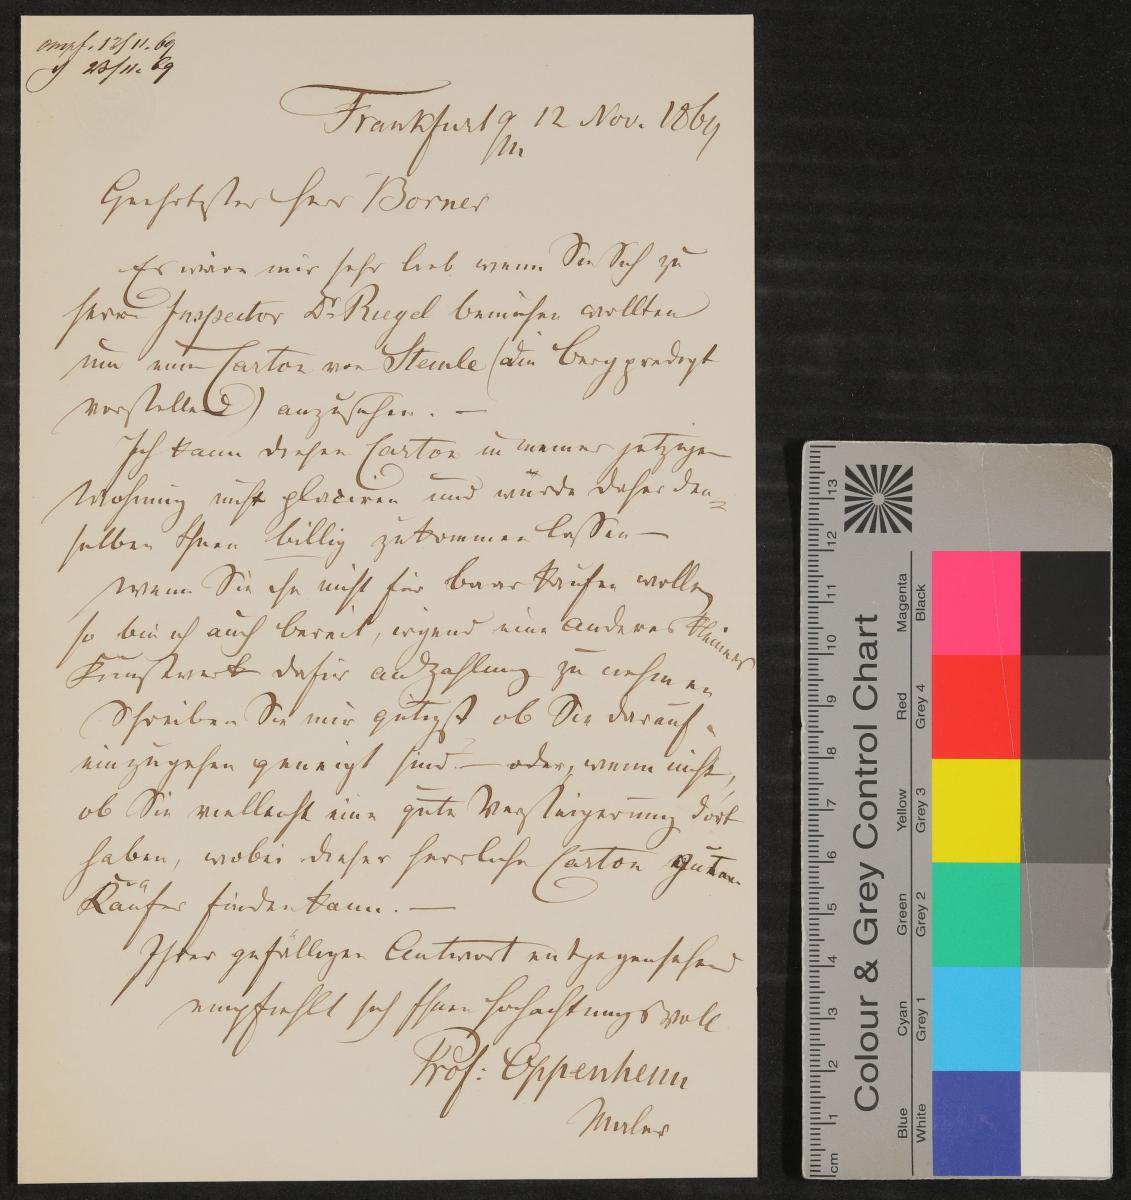 empf. 13/11. 69
23/11. 69
Frankfurt a/M 12 Nov. 1869
Geehrtester Herr Börner
Es wäre mir sehr lieb wenn Sie Sich zu
Herrn Inspector Dr Riegel bemühen wollten
um einen Carton von Steinle (die Bergpredigt
vorstellend) anzusehen. —
Ich kann diesen Carton in meiner jetzigen
Wohnung nicht placiren und würde daher den=
selben Ihnen billig zukommen lassen —
Wenn Sie ihn nicht für baar kaufen wollen
so bin ich auch bereit, irgend ein anderes kleines
Kunstwerk dafür an Zahlung zu nehmen
Schreiben Sie mir gütigst ob Sie darauf
einzugehen geneigt sind — oder, wenn nicht,
ob Sie vielleicht eine gute Versteigerung dort
haben, wobei dieser herrliche Carton guten
Käufer finden kann. —
Ihrer gefälligen Antwort entgegensehend
empfiehlt sich Ihnen hochachtungsvoll
Prof: Oppenheim
Maler
Colour & Grey Control Chart
Blue Cyan Green Yellow Red Magenta
White Grey 1 Grey 2 Grey 3 Grey 4 Black
cm 1 2 3 4 5 6 7 8 9 10 11 12 13